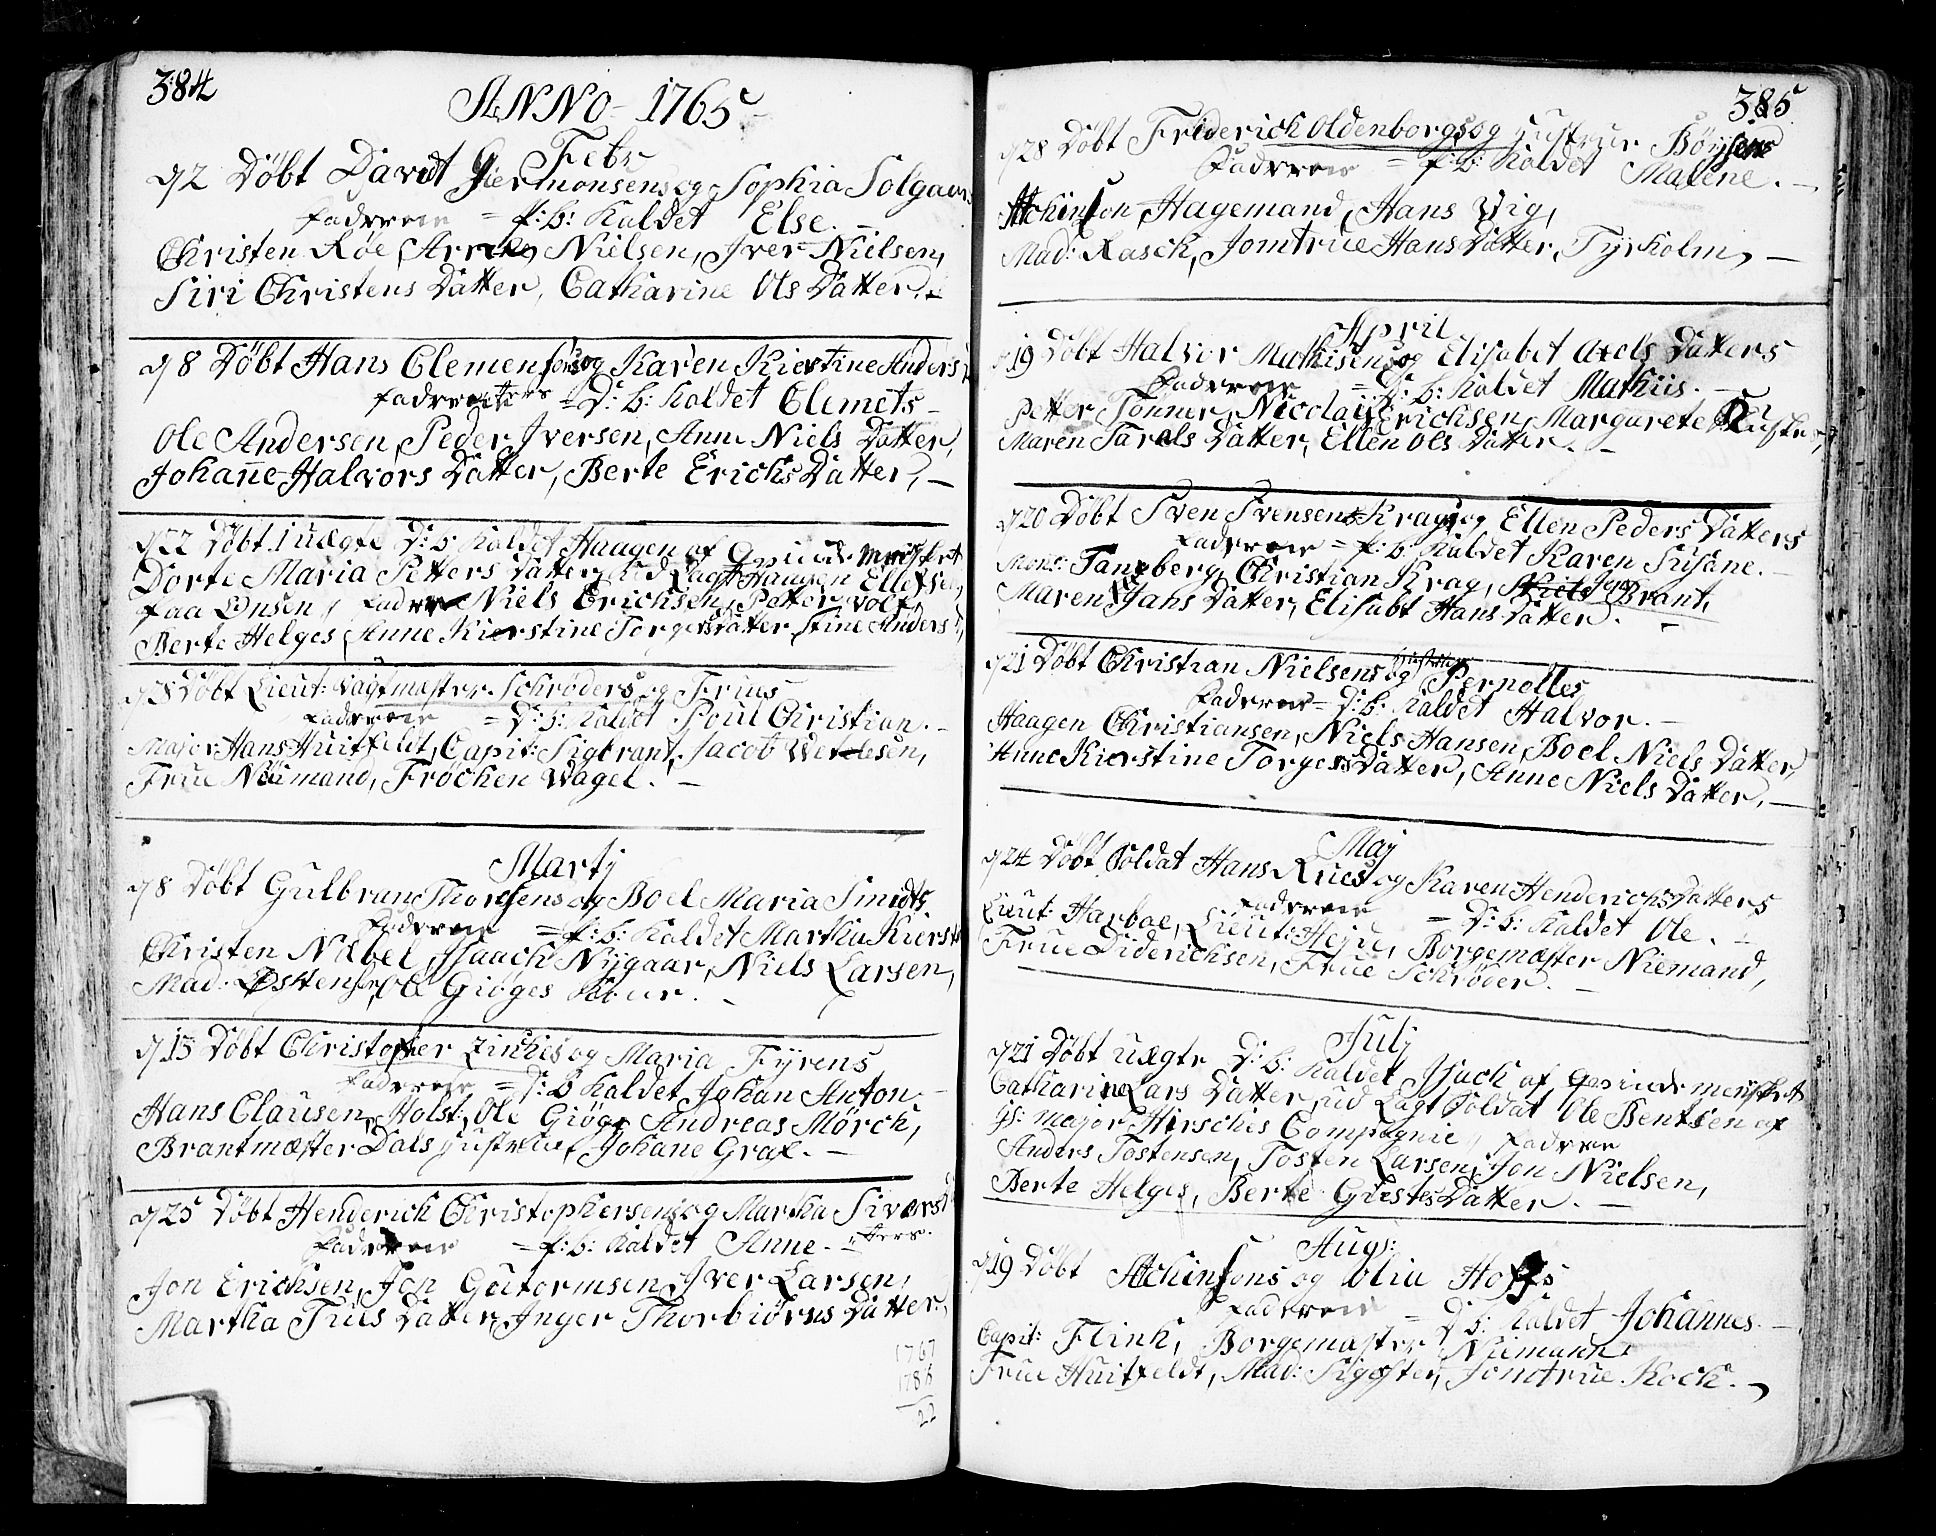 384
ANNO 1765
Febr
d 2 Döbt David Giermonsens og Sophia Solgaars
Fadderne = P: b: Kaldet Else. —
Christen Röe, Nielsen, Jver Nielsen,
Siri Christens Datter, Catharine Ols Datter. —
d 8 Döbt Hans Clemensöns og Karen Kierstine Anders D
Fadderne tters = D: b: Kaldet Clemets —
Ole Andersen, Peder Jversen, Anne Niels Datter,
Johanne Halvors Datter, Berte Erichs Datter, —
d 22 Döbt 1 uægte D: b: Kaldet Haagen af Qvinde Mennisket
Dorte Maria Petters Datter, ud Lagt Haagen Ellefsen
paa Fadder Niels Erichsen, Petter Wolf,
Berte Helges, Anne Kierstine Torgers Datter, Stine Anders D,
d Döbt Lieut: Wagtmæster Schröders og Frues
Fadderne = D: b: Kaldet Poul Christian. —
Major Hans Huitfeldt, Capit: Sigbrant, Jacob Wetlesen,
Frue Niimand, Fröcken Wagel. —
Martj
d 8 Döbt Gulbran Thoresens og Boel Maria Smidts
Fadderne = P: b: Kaldet Martha Kierst
Christen Nabel, Jsaach Nÿgaar, Niels Larsen,
Mad: Östensen, Ole Giöges
d 13 Döbt Christopher Zinkies og Maria Fÿrens
Fadderne = D: b Kaldet Johan Anton. —
Hans Clausen, Holst, Ole Giöge Andreas Mörch,
Brantmæster Dals Hustrue, Johane Grae. —
d 25 Döbt Henderich Christophersens og Martha Sivers D
Fadderne = P: b: Kaldet Anne. — tters.
Jon Erichsen, Jon Gutormsen, Jver Larsen,
Martha Trues Datter, Jnger Thorbiörns Datter,
1767
1786
22
385
d 28 Döbt Friderich Oldenborgs og Hustrue Böysene
Fadderne = P: b: Kaldet Malene. —
Atchinson, Hagemand, Hans Wig,
Mad: Rasch, Jomfrue Hans Datter, Tÿrholm, —
April
d 19 Döbt Halvor Mathisens og Elisabet Axels Datters
Fadderne = D: b: Kaldet Mathiis. —
Petter Tonner, Nicolaÿ Erichsen, Margarete Hustrue,
Maren Tarals Datter, Ellen Ols Datter. —
d 20 Döbt Sven Svensens Krags og Ellen Peders Datters
Fadderne = P: b: Kaldet Karen Susane. —
Mons: Tangberg, Christian Krag, Niels Jens Brant,
Maren Jahs Datter, Elisabt Hans Datter. —
d 21 Döbt Christian Nielsens og Hustrue Pernolles
Fadderne = D: b: Kaldet Halvor. —
Haagen Christiansen, Niels Hansen, Boel Niels Datter,
Anne Kierstine Torgers Datter, Anne Niels Datter, —
Maj
d 24 Döbt Soldat Hans Rues og Karen Henderichs Datters
Fadderne = D: b: Kaldet Ole. —
Lieut: Harboe, Lieut: Heÿe, Borgemæster Niemand,
Frue Diderichsen, Frue Schröder. —
Julj
d 21 Döbt uægte D: b: Kaldet Jsach af Qvindemensket
Catharine Lars Datter, ud Lagt Soldat Ole Bentsen af
Gs: Major Hirschis Compagnie, Faddere
Anders Tostensen, Tosten Larsen, Jon Nielsen,
Berte Helges, Berte Giestes Datter. —
Augs:
d 19 Döbt Atchinsons og Olia Hoffs
Fadderne = D: b: Kaldet Johannes. —
Capit: Flink, Borgemæster Niemann
Frue Huitfeldt, Mad: Sigester, Jomfrue Kock. —